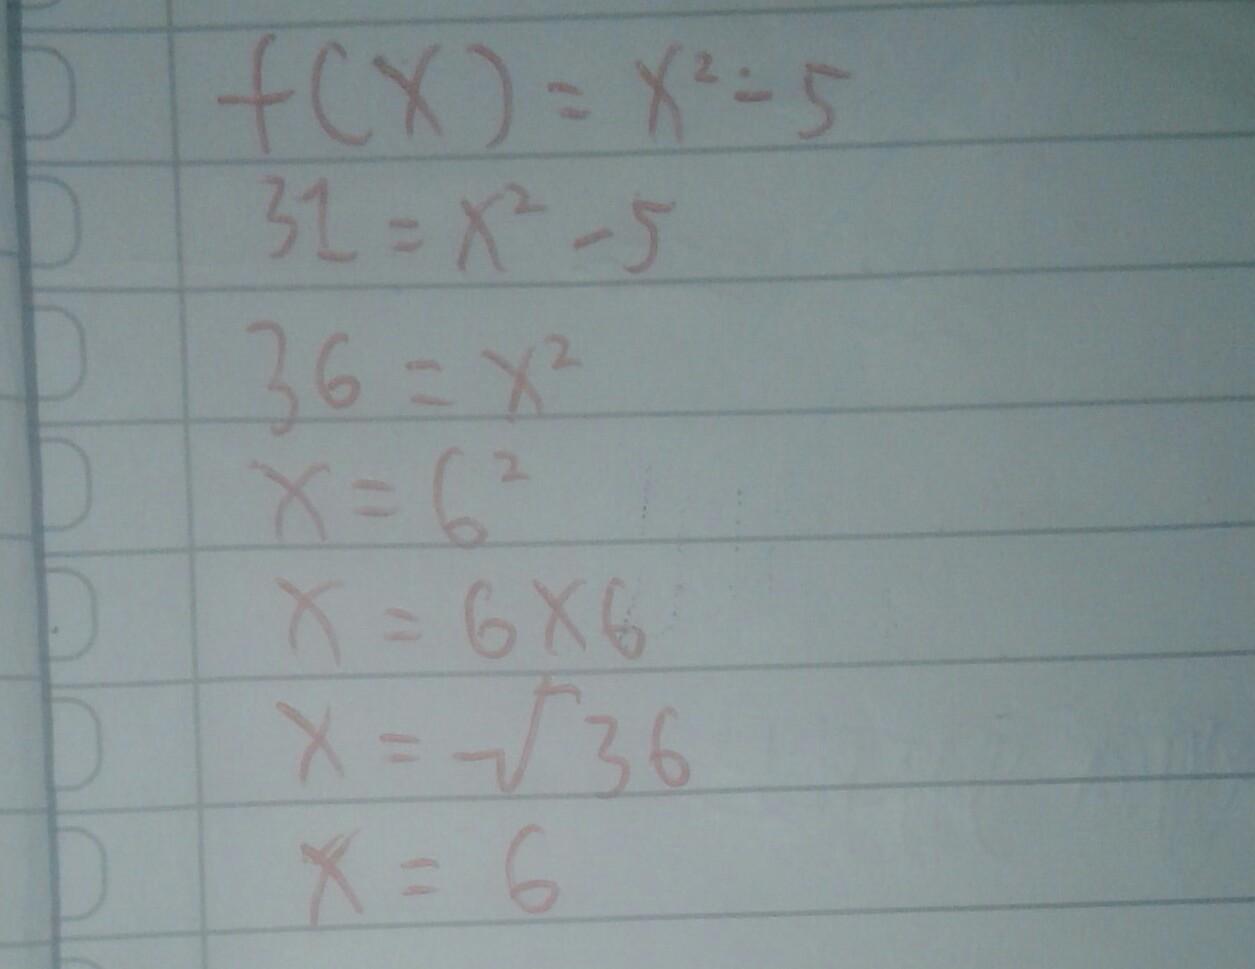 f(x) = x² - 5
31 = x² - 5
36 = x²
x = 6²
x = 6 x 6
x = √36
x = 6